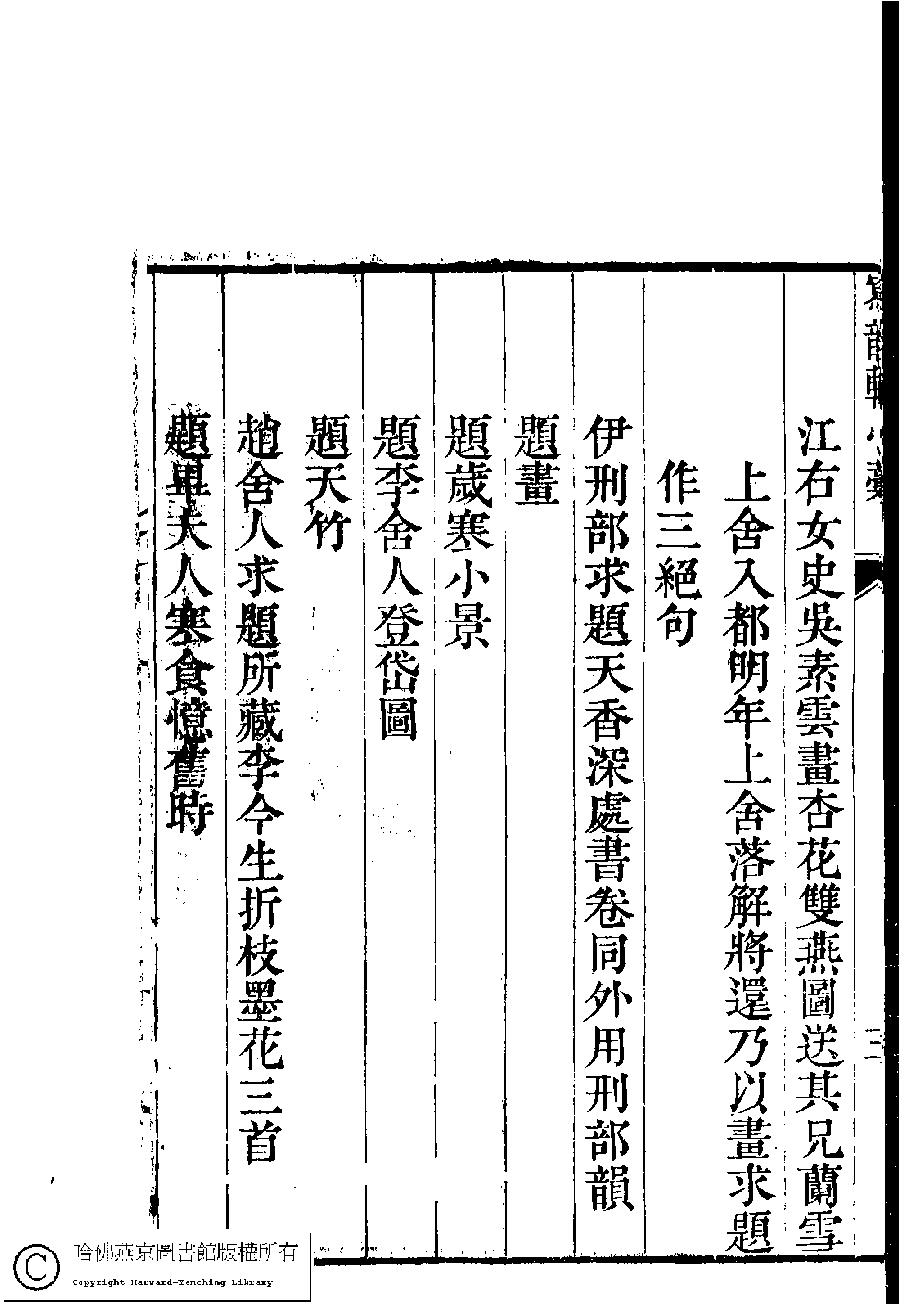 江右女史吳素雲畫杏花雙燕圖送其兄蘭雪
上舍入都明年上舍落解將還乃以畫求題
作三絕句
伊刑部求題天香深處書卷同外用刑部韻
題畫
題歲寒小景
題李舍人登岱圖
題天竹
趙舍人求題所藏李今生折枝墨花三首
題畢夫人寒食憶舊時
三
哈佛燕京圖書館版權所有
Copyright Harvard-Yenching Library